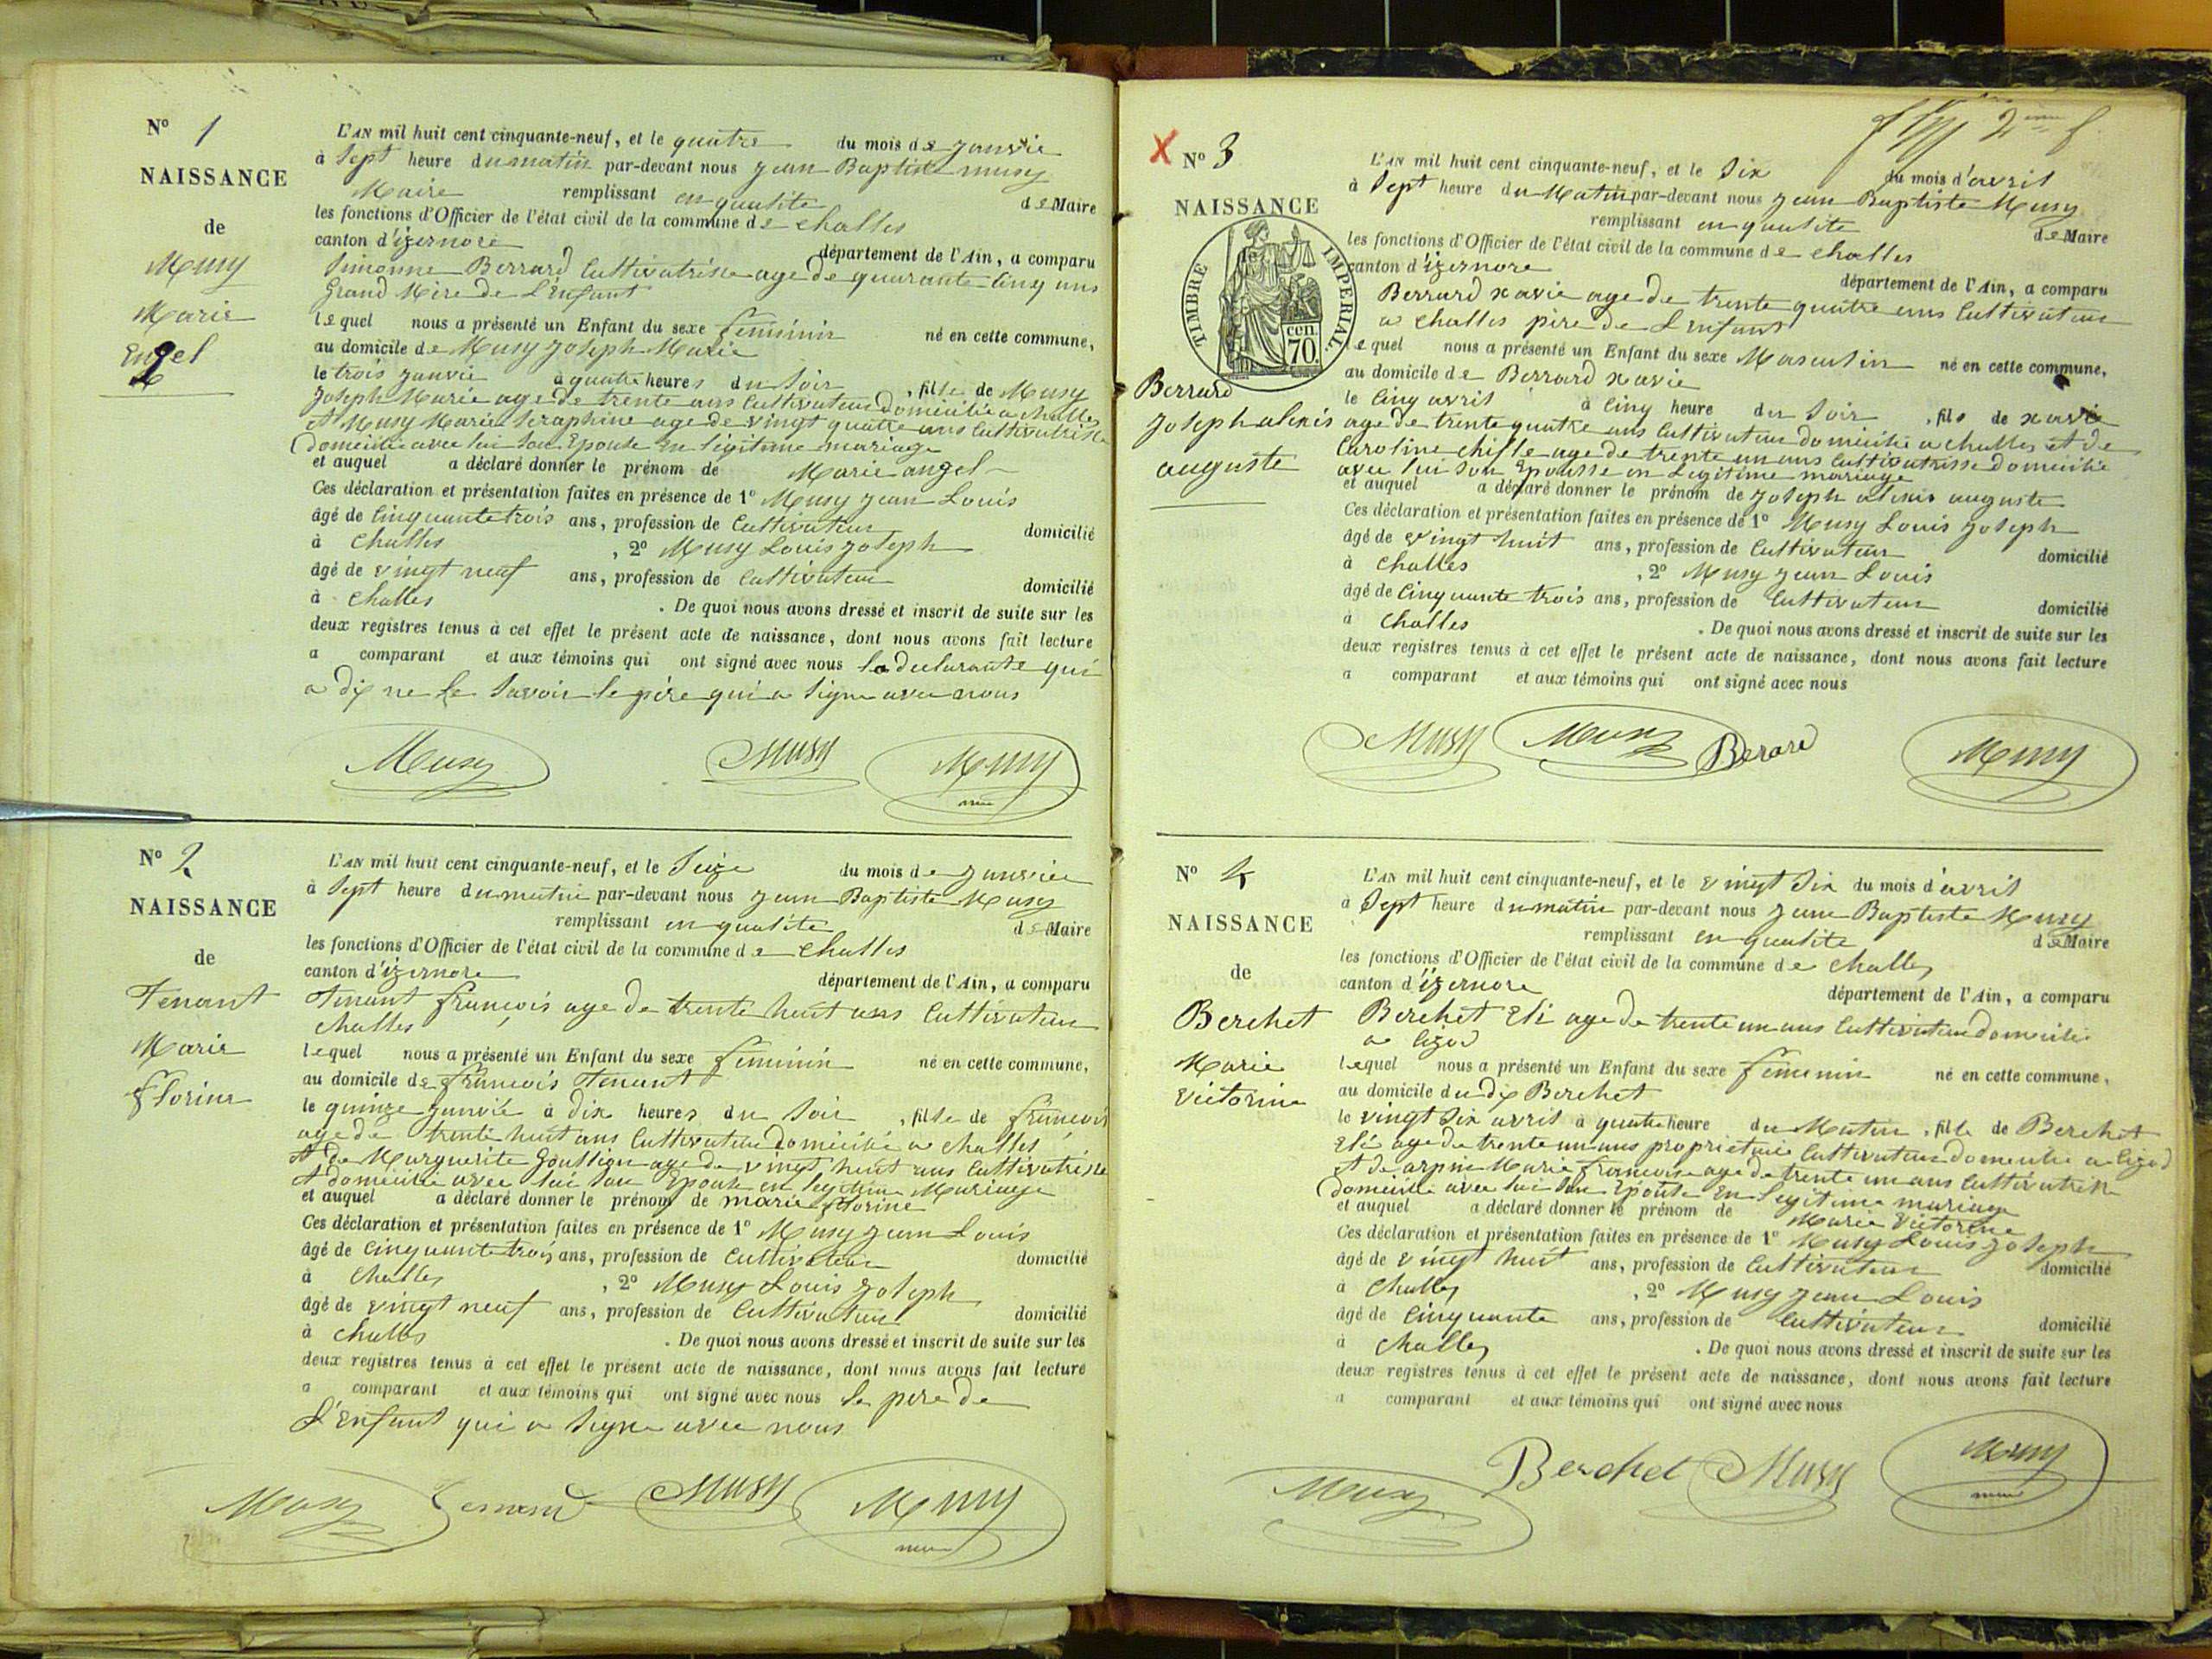 N° 1
NAISSANCE
de
Musy
Marie
Engel
L'AN mil huit cent cinquante-neuf, et le quatre du mois de janvie
à sept heure du matin par-devant nous jean Baptiste musy
Maire remplissant en qualite de Maire
les fonctions d'Officier de l'état civil de la commune de challes
canton d'izernore département de l'Ain, a comparu
Simonne Berrard Cultivatrisse age de quarante cinq ans
Grand Mere de L'Enfant
lequel nous a présenté un Enfant du sexe feminin né en cette commune,
au domicile de Musy joseph Marie
le trois janvie à quatre heures du soir, fille de Musy
joseph Marie age de trente ans Cultivateur domicilie a challes
et Musy Marie Seraphine age de vingt quatre ans Cultivatrisse
domicilie avec lui son Epouse en légitime mariage
et auquel a déclaré donner le prénom de Marie angel
Ces déclaration et présentation faites en présence de 1° Musy jean Louis
âgé de Cinquante trois ans, profession de Cultivateur domicilié
à challes, 2° Musy Louis joseph
âgé de vingt neuf ans, profession de Cultivateur domicilié
à challes. De quoi nous avons dressé et inscrit de suite sur les
deux registres tenus à cet effet le présent acte de naissance, dont nous avons fait lecture
a comparant et aux témoins qui ont signé avec nous la declarante qui
a dis ne le savoir le père qui a signe avec nous
Musy Musy Musy
N° 2
NAISSANCE
de
Tenant
Marie
florine
L'AN mil huit cent cinquante-neuf, et le Seize du mois de janvier
à sept heure du matin par-devant nous jean Baptiste Musy
remplissant en qualite de Maire
les fonctions d'Officier de l'état civil de la commune de challes
canton d'izernore département de l'Ain, a comparu
Tenant françois age de trente huit ans Cultivateur
challes
lequel nous a présenté un Enfant du sexe feminin né en cette commune,
au domicile de françois Tenant
le quinze janvié à dix heures du soir, fille de françois
age de trente huit ans Cultivateur domicilié a challes
et de Marguerite Goussion age de vingt huit ans Cultivatrisse
et domicilie avec lui son Epouse en legitime Mariage
et auquel a déclaré donner le prénom de marie florine
Ces déclaration et présentation faites en présence de 1° Musy jean Louis
âgé de Cinquante trois ans, profession de Cultivateur domicilié
à challes, 2° Musy Louis joseph
âgé de vingt neuf ans, profession de Cultivateur domicilié
à challes. De quoi nous avons dressé et inscrit de suite sur les
deux registres tenus à cet effet le présent acte de naissance, dont nous avons fait lecture
a comparant et aux témoins qui ont signé avec nous le pere de
L'Enfant qui a signe avec nous
Musy Tenand Musy Musy
2
X N° 3
NAISSANCE
TIMBRE IMPERIAL
cen.
70.
Berrard
joseph alexis
auguste
L'AN mil huit cent cinquante-neuf, et le Six du mois d'avril
à sept heure du Matin par-devant nous jean Baptiste Musy
remplissant en qualite de Maire
les fonctions d'Officier de l'état civil de la commune de challes
canton d'izernore département de l'Ain, a comparu
Berrard xavie age de trente quatre ans Cultivateur
a challes père de L'Enfant
lequel nous a présenté un Enfant du sexe Masculin né en cette commune,
au domicile de Berrard xavie
le Cinq avril à Cinq heure du soir, fils de xavie
age de trente quatre ans Cultivateur domicilie a challes et de
Caroline chiffe age de trente un ans Cultivatrisse domicilie
avec lui son Epousse en Legitime mariage
et auquel a déclaré donner le prénom de joseph alexis auguste
Ces déclaration et présentation faites en présence de 1° Musy Louis joseph
âgé de vingt huit ans, profession de Cultivateur domicilié
à challes, 2° Musy jean Louis
âgé de Cinquante trois ans, profession de Cultivateur domicilié
à challes. De quoi nous avons dressé et inscrit de suite sur les
deux registres tenus à cet effet le présent acte de naissance, dont nous avons fait lecture
a comparant et aux témoins qui ont signé avec nous
Musy Musy Berard Musy
N° 4
NAISSANCE
de
Berchet
Marie
victorine
L'AN mil huit cent cinquante-neuf, et le vingt six du mois d'avril
à sept heure du matin par-devant nous jean Baptiste Musy
remplissant en qualite de Maire
les fonctions d'Officier de l'état civil de la commune de challes
canton d'izernore département de l'Ain, a comparu
Berchet Eli age de trente un ans Cultivateur domicilie
a
lequel nous a présenté un Enfant du sexe feminin né en cette commune,
au domicile du dis Berchet
le vingt six avril à quatre heure du Matin, fille de Berchet
Eli age de trente un ans proprietaire Cultivateur domicilie a
et de arpin Marie francoise age de trente un ans Cultivatrisse
domicilie avec lui son Epouse en legitime mariage
et auquel a déclaré donner le prénom de Marie victorine
Ces déclaration et présentation faites en présence de 1° Musy Louis joseph
âgé de vingt huit ans, profession de Cultivateur domicilié
à challes, 2° Musy jean Louis
âgé de Cinquante ans, profession de Cultivateur domicilié
à challes. De quoi nous avons dressé et inscrit de suite sur les
deux registres tenus à cet effet le présent acte de naissance, dont nous avons fait lecture
a comparant et aux témoins qui ont signé avec nous
Musy Berchet Musy Musy